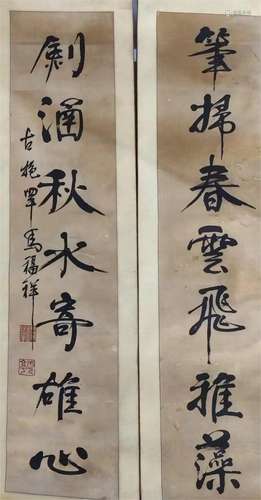 筆掃春雲飛雅藻
劍涵秋水寄雄心
馬福祥